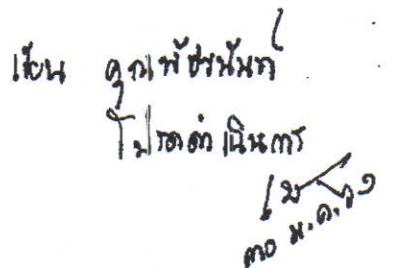 เรียน คุณพัชรนันท์
โปรดดำเนินการ
๓๐ ม.ค.